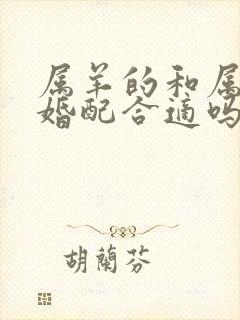 属羊的和属
婚配合适吗
胡蘭芬